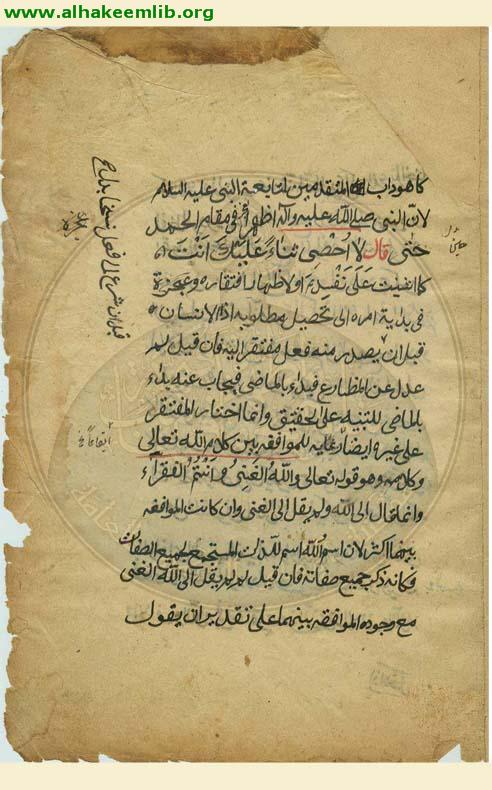 www.alhakeemlib.org
كما هو داب المتقدمين لتابعية النبى عليه السلام
لان النبى صلى الله عليه وآله اظهر فى مقام الحمد
حتى قال لا احصى ثناءً عليك انت
كما اثنيت على نفسك او لاظهار افتقاره وعجزه
فى بداية امره الى تحصيل مطلوبه اذ الانسان
قبل ان يصدر منه فعل مفتقر اليه فان قيل لم
عدل عن المظارع فبداء بالماضى فيجاب عنه بداء
بالماضى للتنبيه على الحقيق وانما اختار المفتقر
على غيره ايضاً رعايه للموافقه بين كلام الله تعالى
وكلامه وهو قوله تعالى والله الغنى وانتم الفقراء
وانما قال الى الله ولم يقل الى الغنى وان كانت الموافقه
بينهما اكثر لان اسم الله اسم للذات المستجمع لجميع الصفات
فكانه ذكر جميع صفاته فان قيل لم لم يقل الى الله الغنى
مع وجود الموافقه بينهما على تقدير ان يقول
قبل ان شرع الى فعل